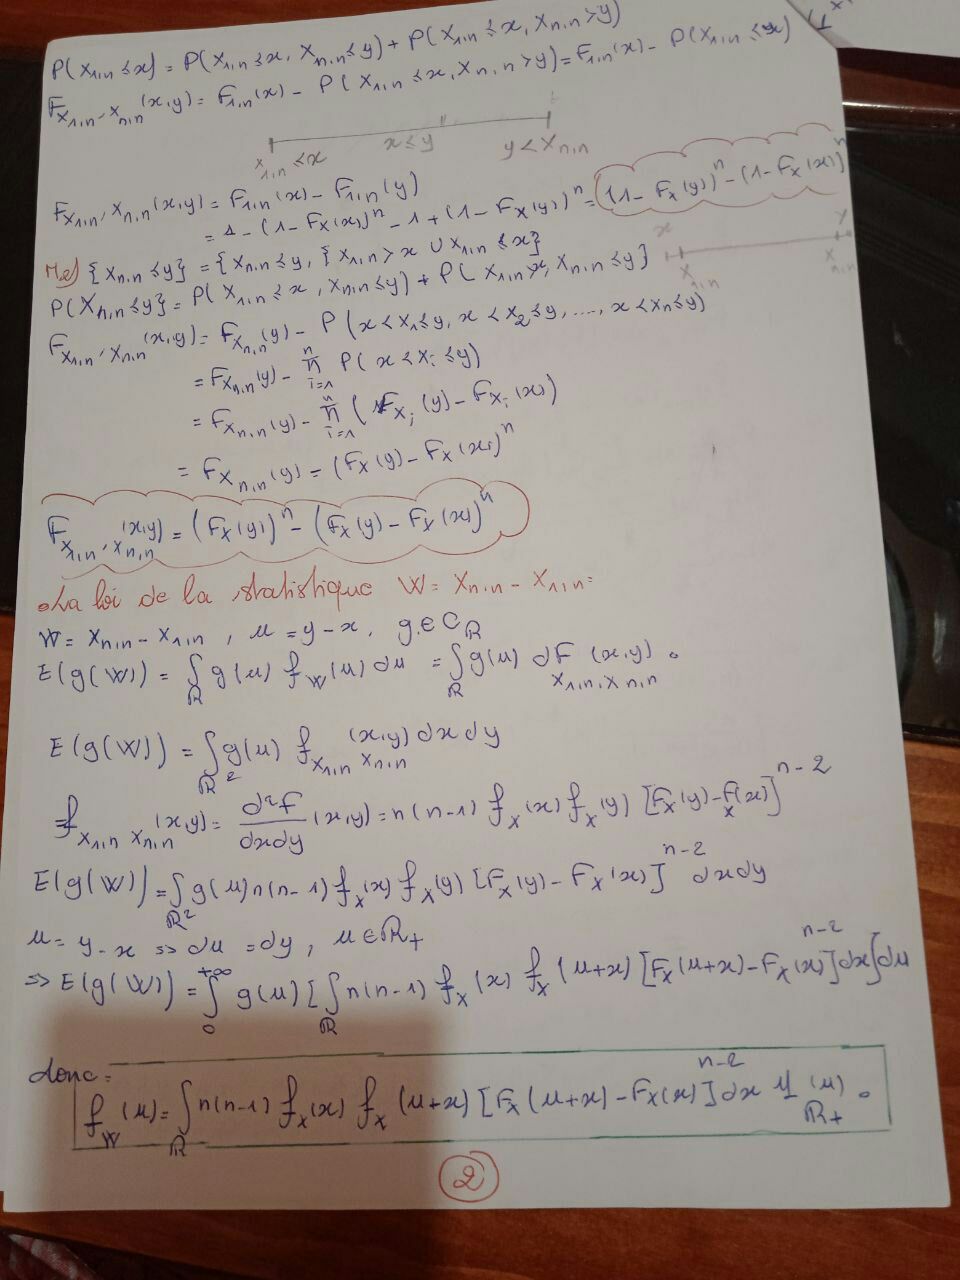 P(X₁,ₙ ≤ x) = P(X₁,ₙ ≤ x, Xₙ,ₙ ≤ y) + P(X₁,ₙ ≤ x, Xₙ,ₙ > y)
F_{X₁,ₙ, Xₙ,ₙ}(x,y) = F₁,ₙ(x) - P(X₁,ₙ ≤ x, Xₙ,ₙ > y) = F₁,ₙ(x) - P(X₁,ₙ ≤ y)
X₁,ₙ ≤ x   x ≤ y   y < Xₙ,ₙ
F_{X₁,ₙ, Xₙ,ₙ}(x,y) = F₁,ₙ(x) - F₁,ₙ(y)
= 1 - (1 - F_X(x))ⁿ - 1 + (1 - F_X(y))ⁿ = (1 - F_X(y))ⁿ - (1 - F_X(x))ⁿ
M2) {Xₙ,ₙ ≤ y} = {Xₙ,ₙ ≤ y, {X₁,ₙ > x ∪ X₁,ₙ ≤ x}
x y
X₁,ₙ Xₙ,ₙ
P(Xₙ,ₙ ≤ y} = P(X₁,ₙ ≤ x, Xₙ,ₙ ≤ y) + P(X₁,ₙ > x, Xₙ,ₙ ≤ y]
F_{X₁,ₙ, Xₙ,ₙ}(x,y) = F_{Xₙ,ₙ}(y) - P(x < X₁ ≤ y, x < X₂ ≤ y, ...., x < Xₙ ≤ y)
= F_{Xₙ,ₙ}(y) - ∏_{i=1}^{n} P(x < Xᵢ ≤ y)
= F_{Xₙ,ₙ}(y) - ∏_{i=1}^{n} (F_{Xᵢ}(y) - F_{Xᵢ}(x))
= F_{Xₙ,ₙ}(y) = (F_X(y) - F_X(x))ⁿ
F_{X₁,ₙ, Xₙ,ₙ}(x,y) = (F_X(y))ⁿ - (F_X(y) - F_X(x))ⁿ
• La loi de la statistique W = Xₙ,ₙ - X₁,ₙ:
W = Xₙ,ₙ - X₁,ₙ , u = y - x, g ∈ C_ℝ
E(g(W)) = ∫_ℝ g(u) f_W(u) du = ∫_ℝ g(u) dF_{X₁,ₙ, Xₙ,ₙ}(x,y) .
E(g(W)) = ∫_{ℝ²} g(u) f_{X₁,ₙ Xₙ,ₙ}(x,y) dx dy
=> f_{X₁,ₙ Xₙ,ₙ}(x,y) = d²F/dxdy (x,y) = n(n-1) f_X(x) f_X(y) [F_X(y) - F_X(x)]^{n-2}
E(g(W)) = ∫_{ℝ²} g(u) n(n-1) f_X(x) f_X(y) [F_X(y) - F_X(x)]^{n-2} dx dy
u = y - x => du = dy , u ∈ ℝ₊
=> E(g(W)) = ∫_0^{+∞} g(u) [∫_ℝ n(n-1) f_X(x) f_X(u+x) [F_X(u+x) - F_X(x)]^{n-2} dx] du
donc:
f_W(u) = ∫_ℝ n(n-1) f_X(x) f_X(u+x) [F_X(u+x) - F_X(x)]^{n-2} dx 1_{ℝ₊}(u) .
2